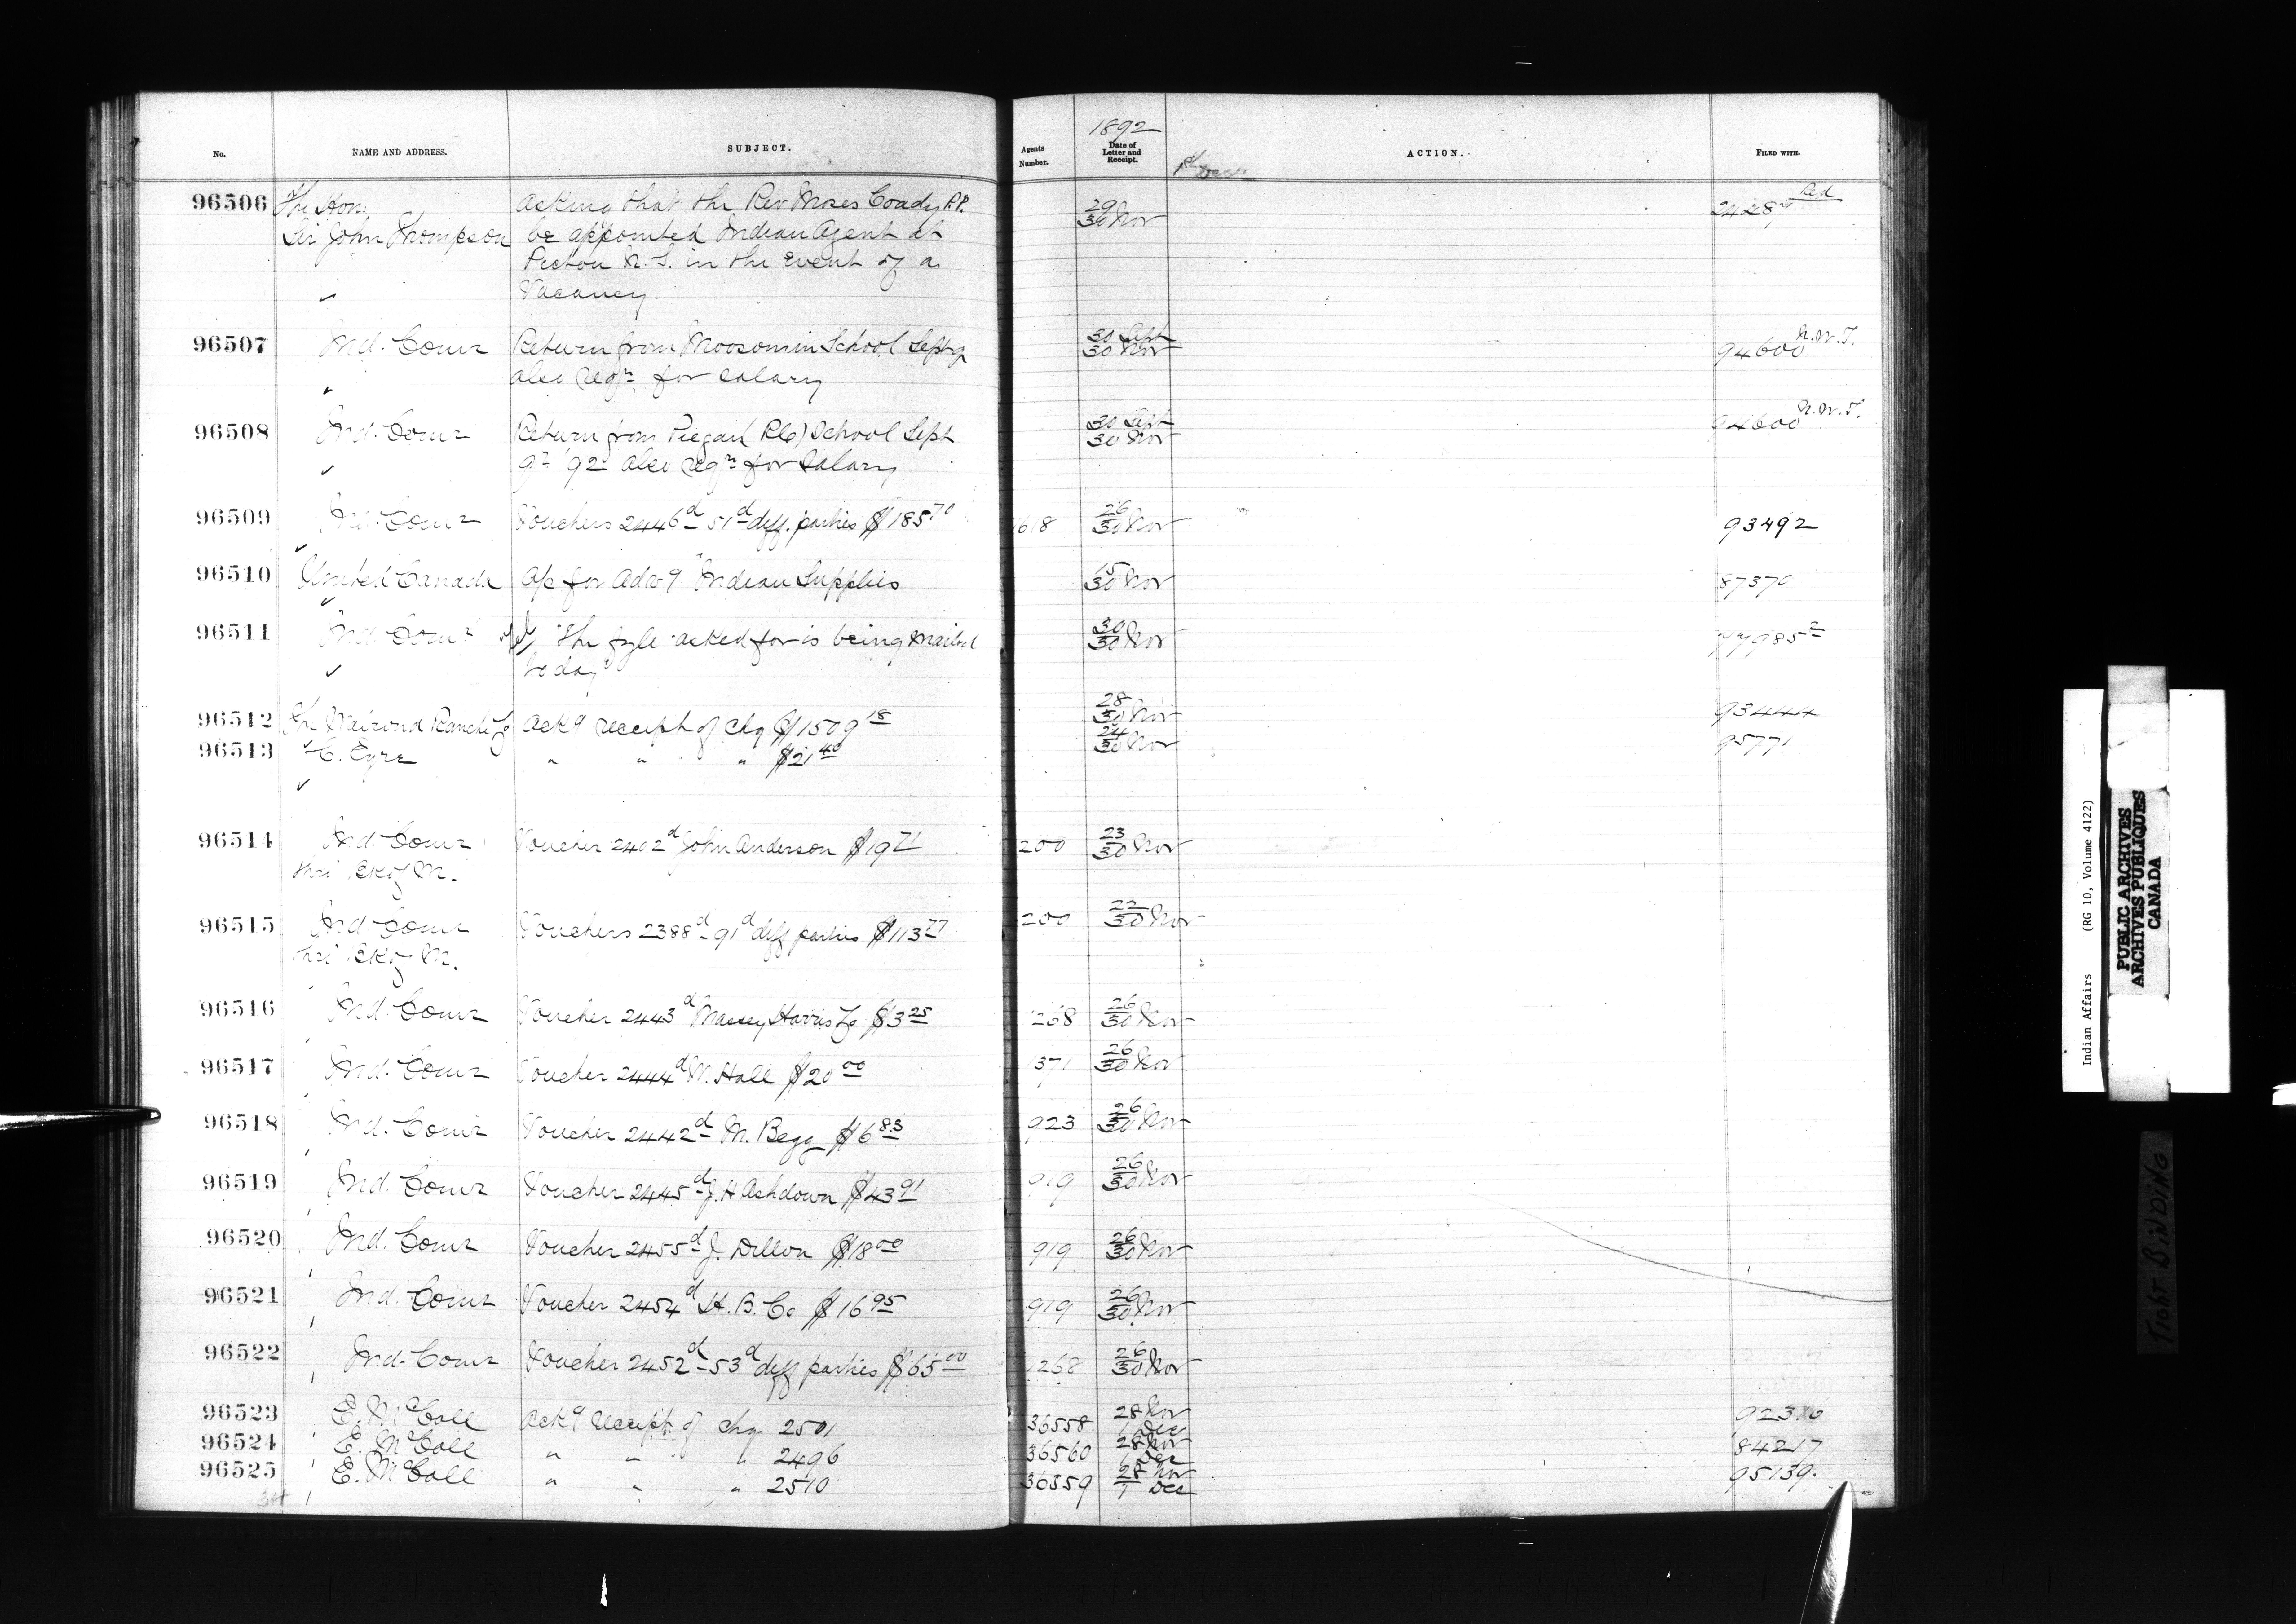 No. NAME AND ADDRESS. SUBJECT. Agents Number. 1892 Date of Letter and Receipt. ACTION. FILED WITH.
96506 The Hon. asking that the Rev Moses Coady P.P. 29 Red
Sir John Thompson be appointed Indian Agent at 30 Nov
Pictou N.S. in the event of a
Vacancy.
96507 Ind. Comr Return from Moosomin School Sept qr 30 Sept 94600 N.W.T.
also reqn for salary 30 Nov
96508 Ind. Comr Return from Piegan (RC) School Sept 30 Sept 94600 N.W.T.
qr '92 also reqn for salary 30 Nov
96509 Ind. Comr Vouchers 2446d - 51d diff. parties $185.70 618 26/30 Nov 93492
96510 United Canada a/c for advg "Indian Supplies 15/30 Nov 87370
96511 Ind. Comr "The fyle asked for is being mailed 30/30 Nov
today"
96512 The Walrond Ranche Co ackg receipt of chq $1509.18 28/30 Nov 93444
96513 C. Eyre " " " $21.40 24/30 Nov 95771
96514 Ind. Comr Voucher 2402d John Anderson $19.71 200 23/30 Nov
96515 Ind Comr Vouchers 2388d - 91d diff parties $113.77 200 22/30 Nov
96516 Ind. Comr Voucher 2443d Massey Harris Co $3.25 268 26/30 Nov
96517 Ind. Comr Voucher 2444d W. Hall $20.00 1371 26/30 Nov
96518 Ind. Comr Voucher 2442d M. Begg $6.83 923 26/30 Nov
96519 Ind. Comr Voucher 2445d J. H Ashdown $43.91 919 26/30 Nov
96520 Ind. Comr Voucher 2455d J. Dillon $18.00 919 26/30 Nov
96521 Ind. Comr Voucher 2454d H. B. Co $16.95 919 26/30 Nov
96522 Ind. Comr Voucher 2452d - 53d diff parties $65.00 1268 26/30 Nov
96523 E. McColl ackg receipt of chq 2501 36558 28 Nov/1 Dec
96524 E. McColl " " " 2496 36560 28 Nov/1 Dec 84217
96525 E. McColl " " " 2510 36559 28 Nov/1 Dec 95139
Indian Affairs (RG 10, Volume 4122)
PUBLIC ARCHIVES
ARCHIVES PUBLIQUES
CANADA
TIGHT BINDING